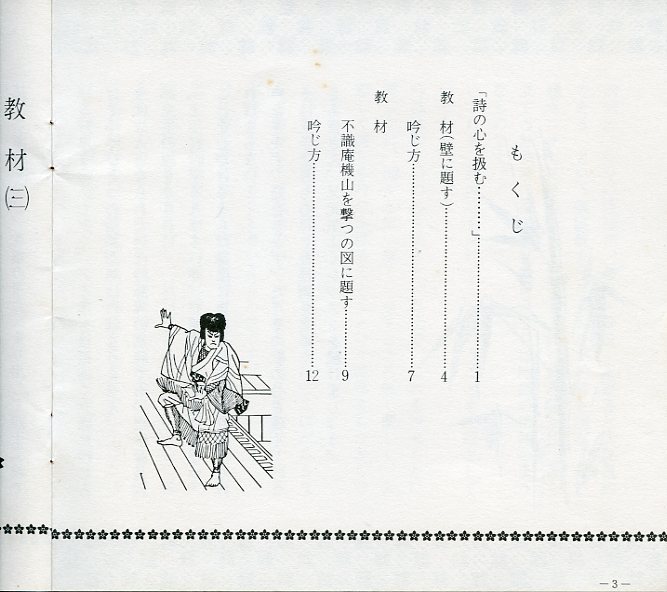 もくじ
「詩の心を扱む………」………1
教材(壁に題す)………4
吟じ方………7
教材
不識庵機山を撃つの図に題す………9
吟じ方………12
教材㈢
—3—